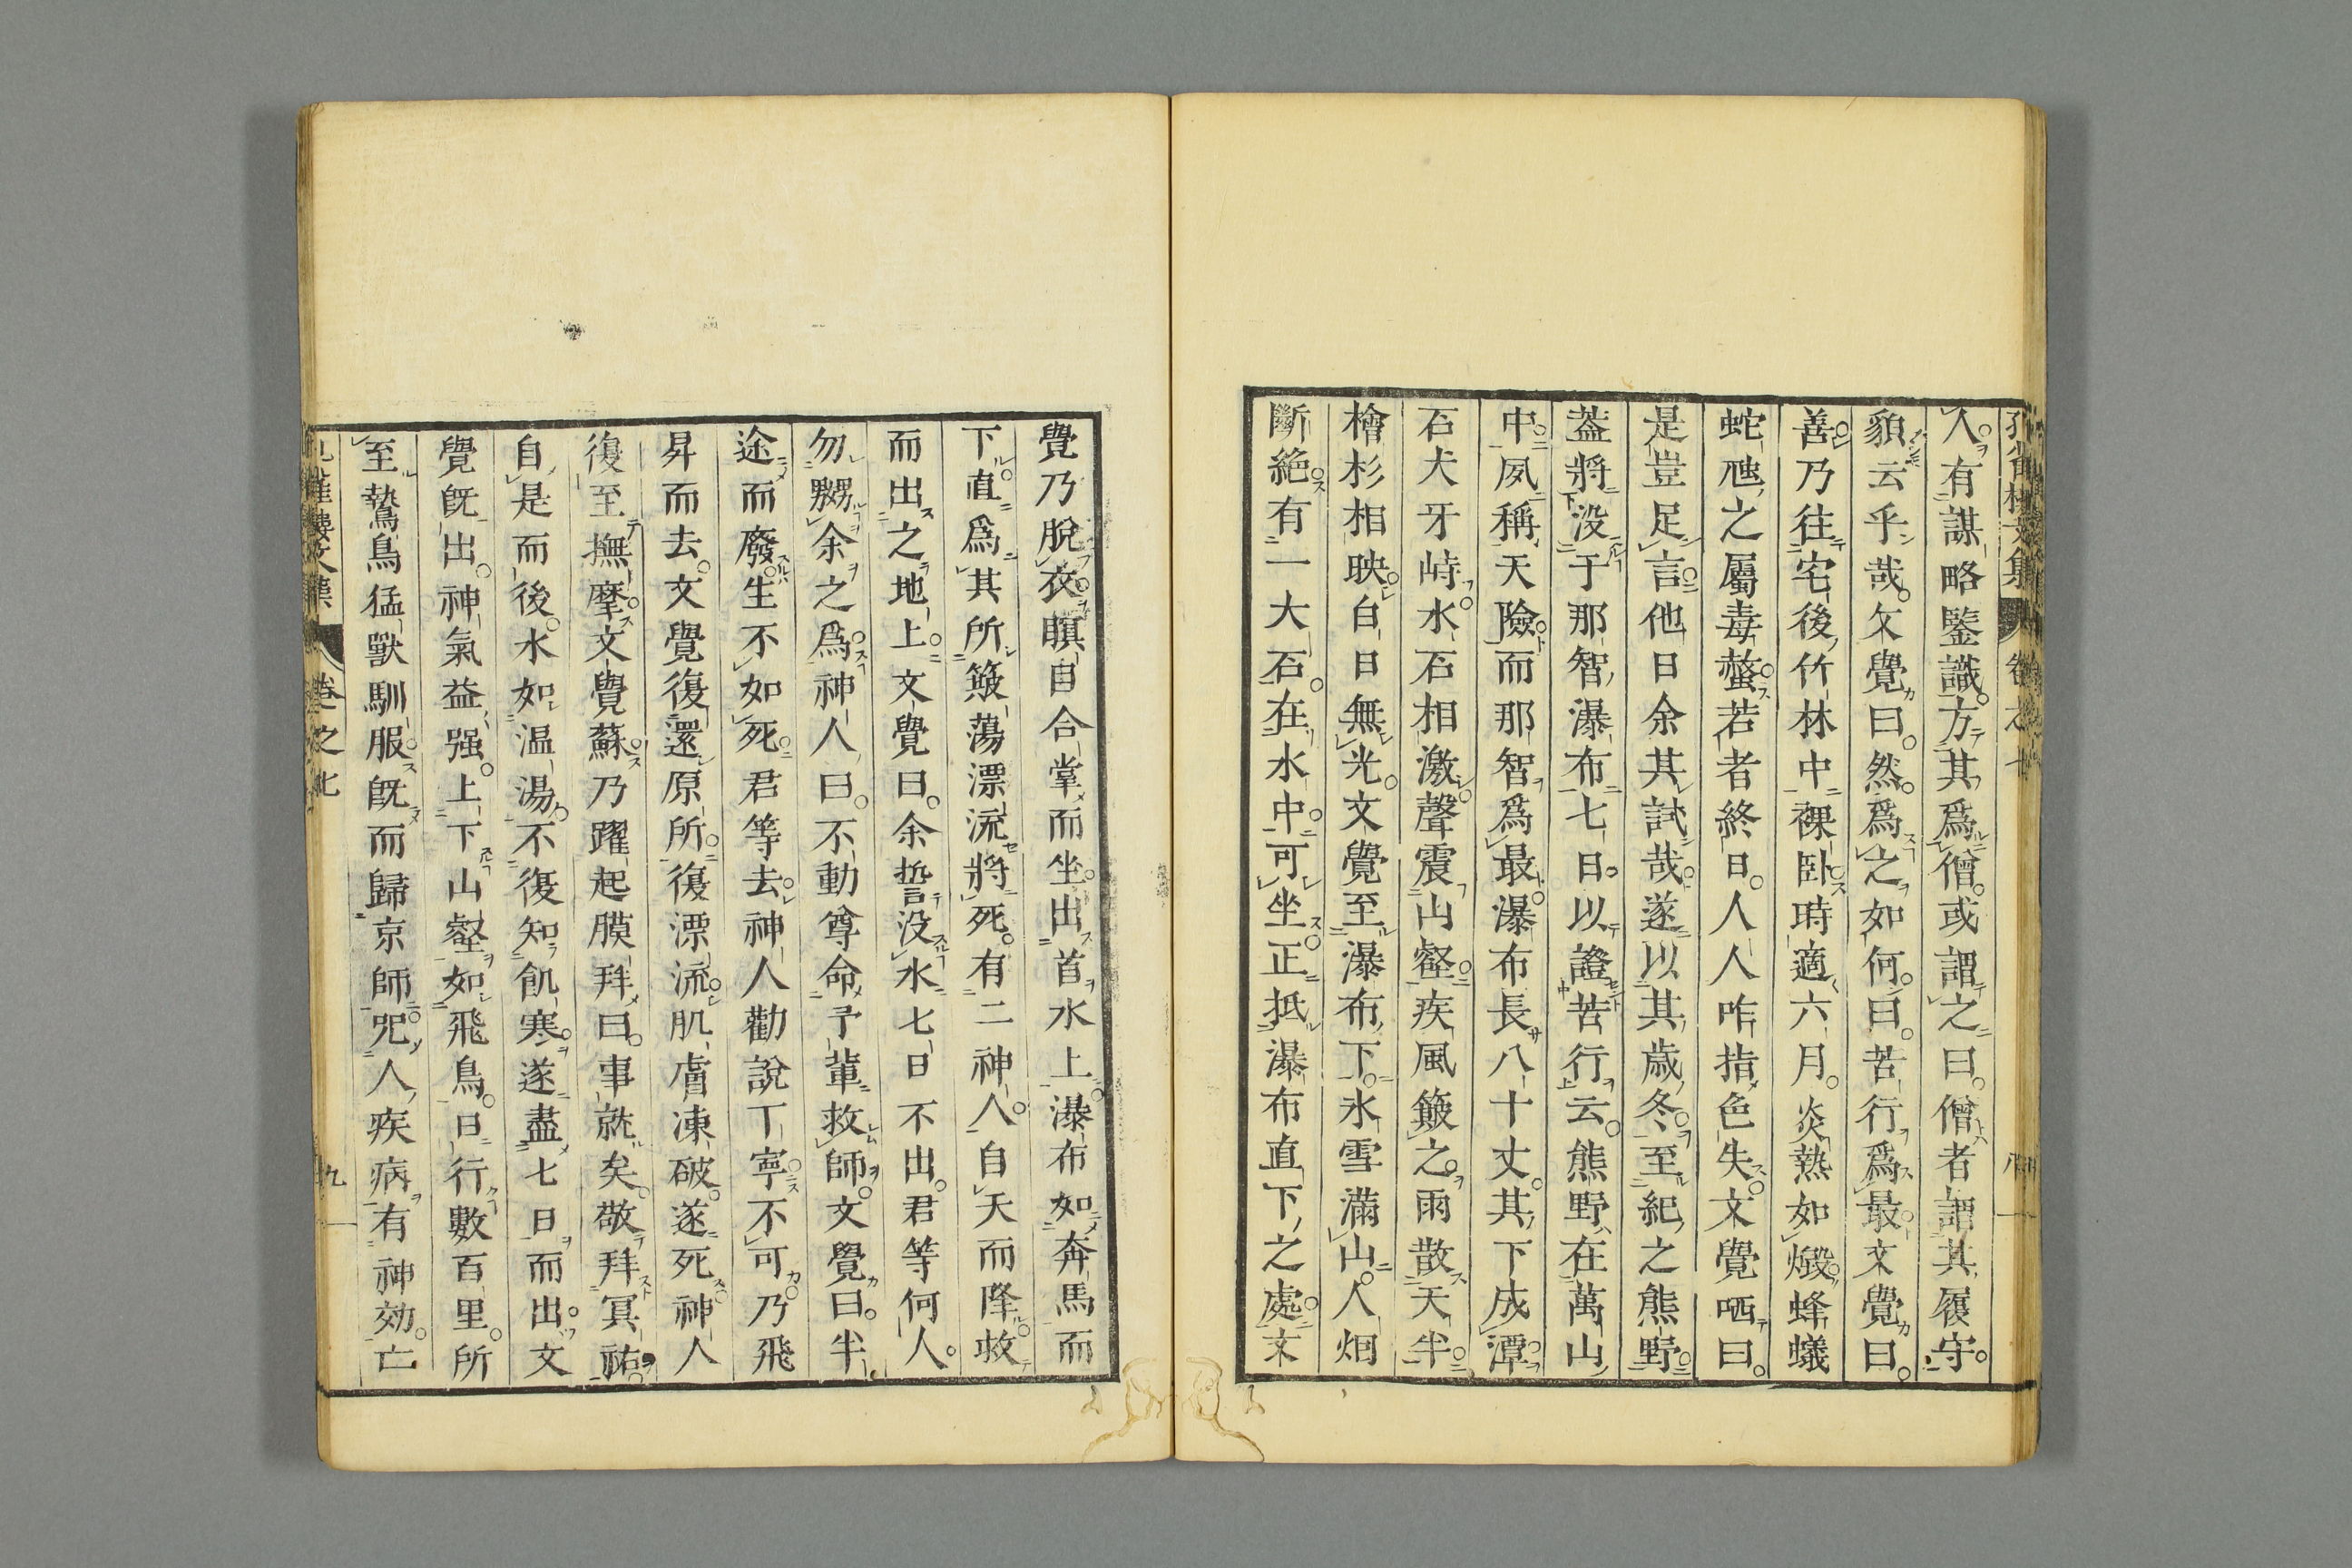 人有謀略鑒識方其爲僧或謂之曰僧者謂其履守
貌云乎哉文覺曰然爲之如何曰苦行爲最文覺曰
善乃往宅後竹林中裸臥時適六月炎熱如燬蜂蟻
蛇虺之屬毒螫若者終日人人咋指色失文覺哂曰
是豈足言他日余其試哉遂以其歳冬至紀之熊野
蓋將没于那智瀑布七日以證苦行云熊野在萬山
中夙稱天險而那智爲最瀑布長八十丈其下成潭
石犬牙峙水石相激聲震山壑疾風簸之雨散天半
檜杉相映白日無光文覺至瀑布下氷雪滿山人烟
斷絶有一大石在水中可坐正抵瀑布直下之處文
卷之七
覺乃脱衣瞑目合掌而坐出首水上瀑布如奔馬而
下直爲其所簸蕩漂流將死有二神人自天而降救
而出之地上文覺曰余誓没水七日不出君等何人
勿嬲余之爲神人曰不動尊命予輩救師文覺曰半
途而廢生不如死君等去神人勸説丁寧不可乃飛
昇而去文覺復還原所復漂流肌膚凍破遂死神人
復至撫摩文覺蘇乃躍起膜拜曰事就矣敬拜冥祐
自是而後水如温湯不復知飢寒遂盡七日而出文
覺既出神氣益强上下山壑如飛鳥日行數百里所
至鷙鳥猛獸馴服既而歸京師咒人疾病有神効亡
樓文集 卷之七 九